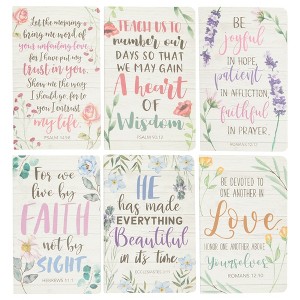 Let the morning
bring me word of
your unfailing love
for I have put my
trust in you.
Show me the way
I should go,
for to you I entrust
my life.
PSALM 143:8
TEACH US TO
number our
DAYS SO THAT
WE MAY GAIN
A heart
OF
Wisdom
PSALM 90:12
BE
joyful
IN HOPE,
patient
IN AFFLICTION
faithful
IN PRAYER.
ROMANS 12:12
For we
live by
FAITH
not by
SIGHT.
HE
has made
EVERYTHING
Beautiful
in its time.
ECCLESIASTES 3:11
BE DEVOTED TO
ONE ANOTHER IN
Love
HONOR ONE ANOTHER ABOVE
Yourselves
ROMANS 12:10